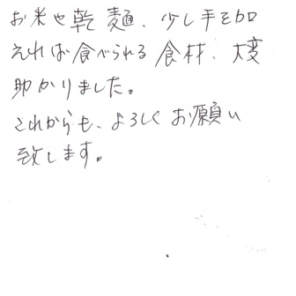 お米や乾麺、少し手を加
えれば食べられる食材、大変
助かりました。
これからも、よろしくお願い
致します。